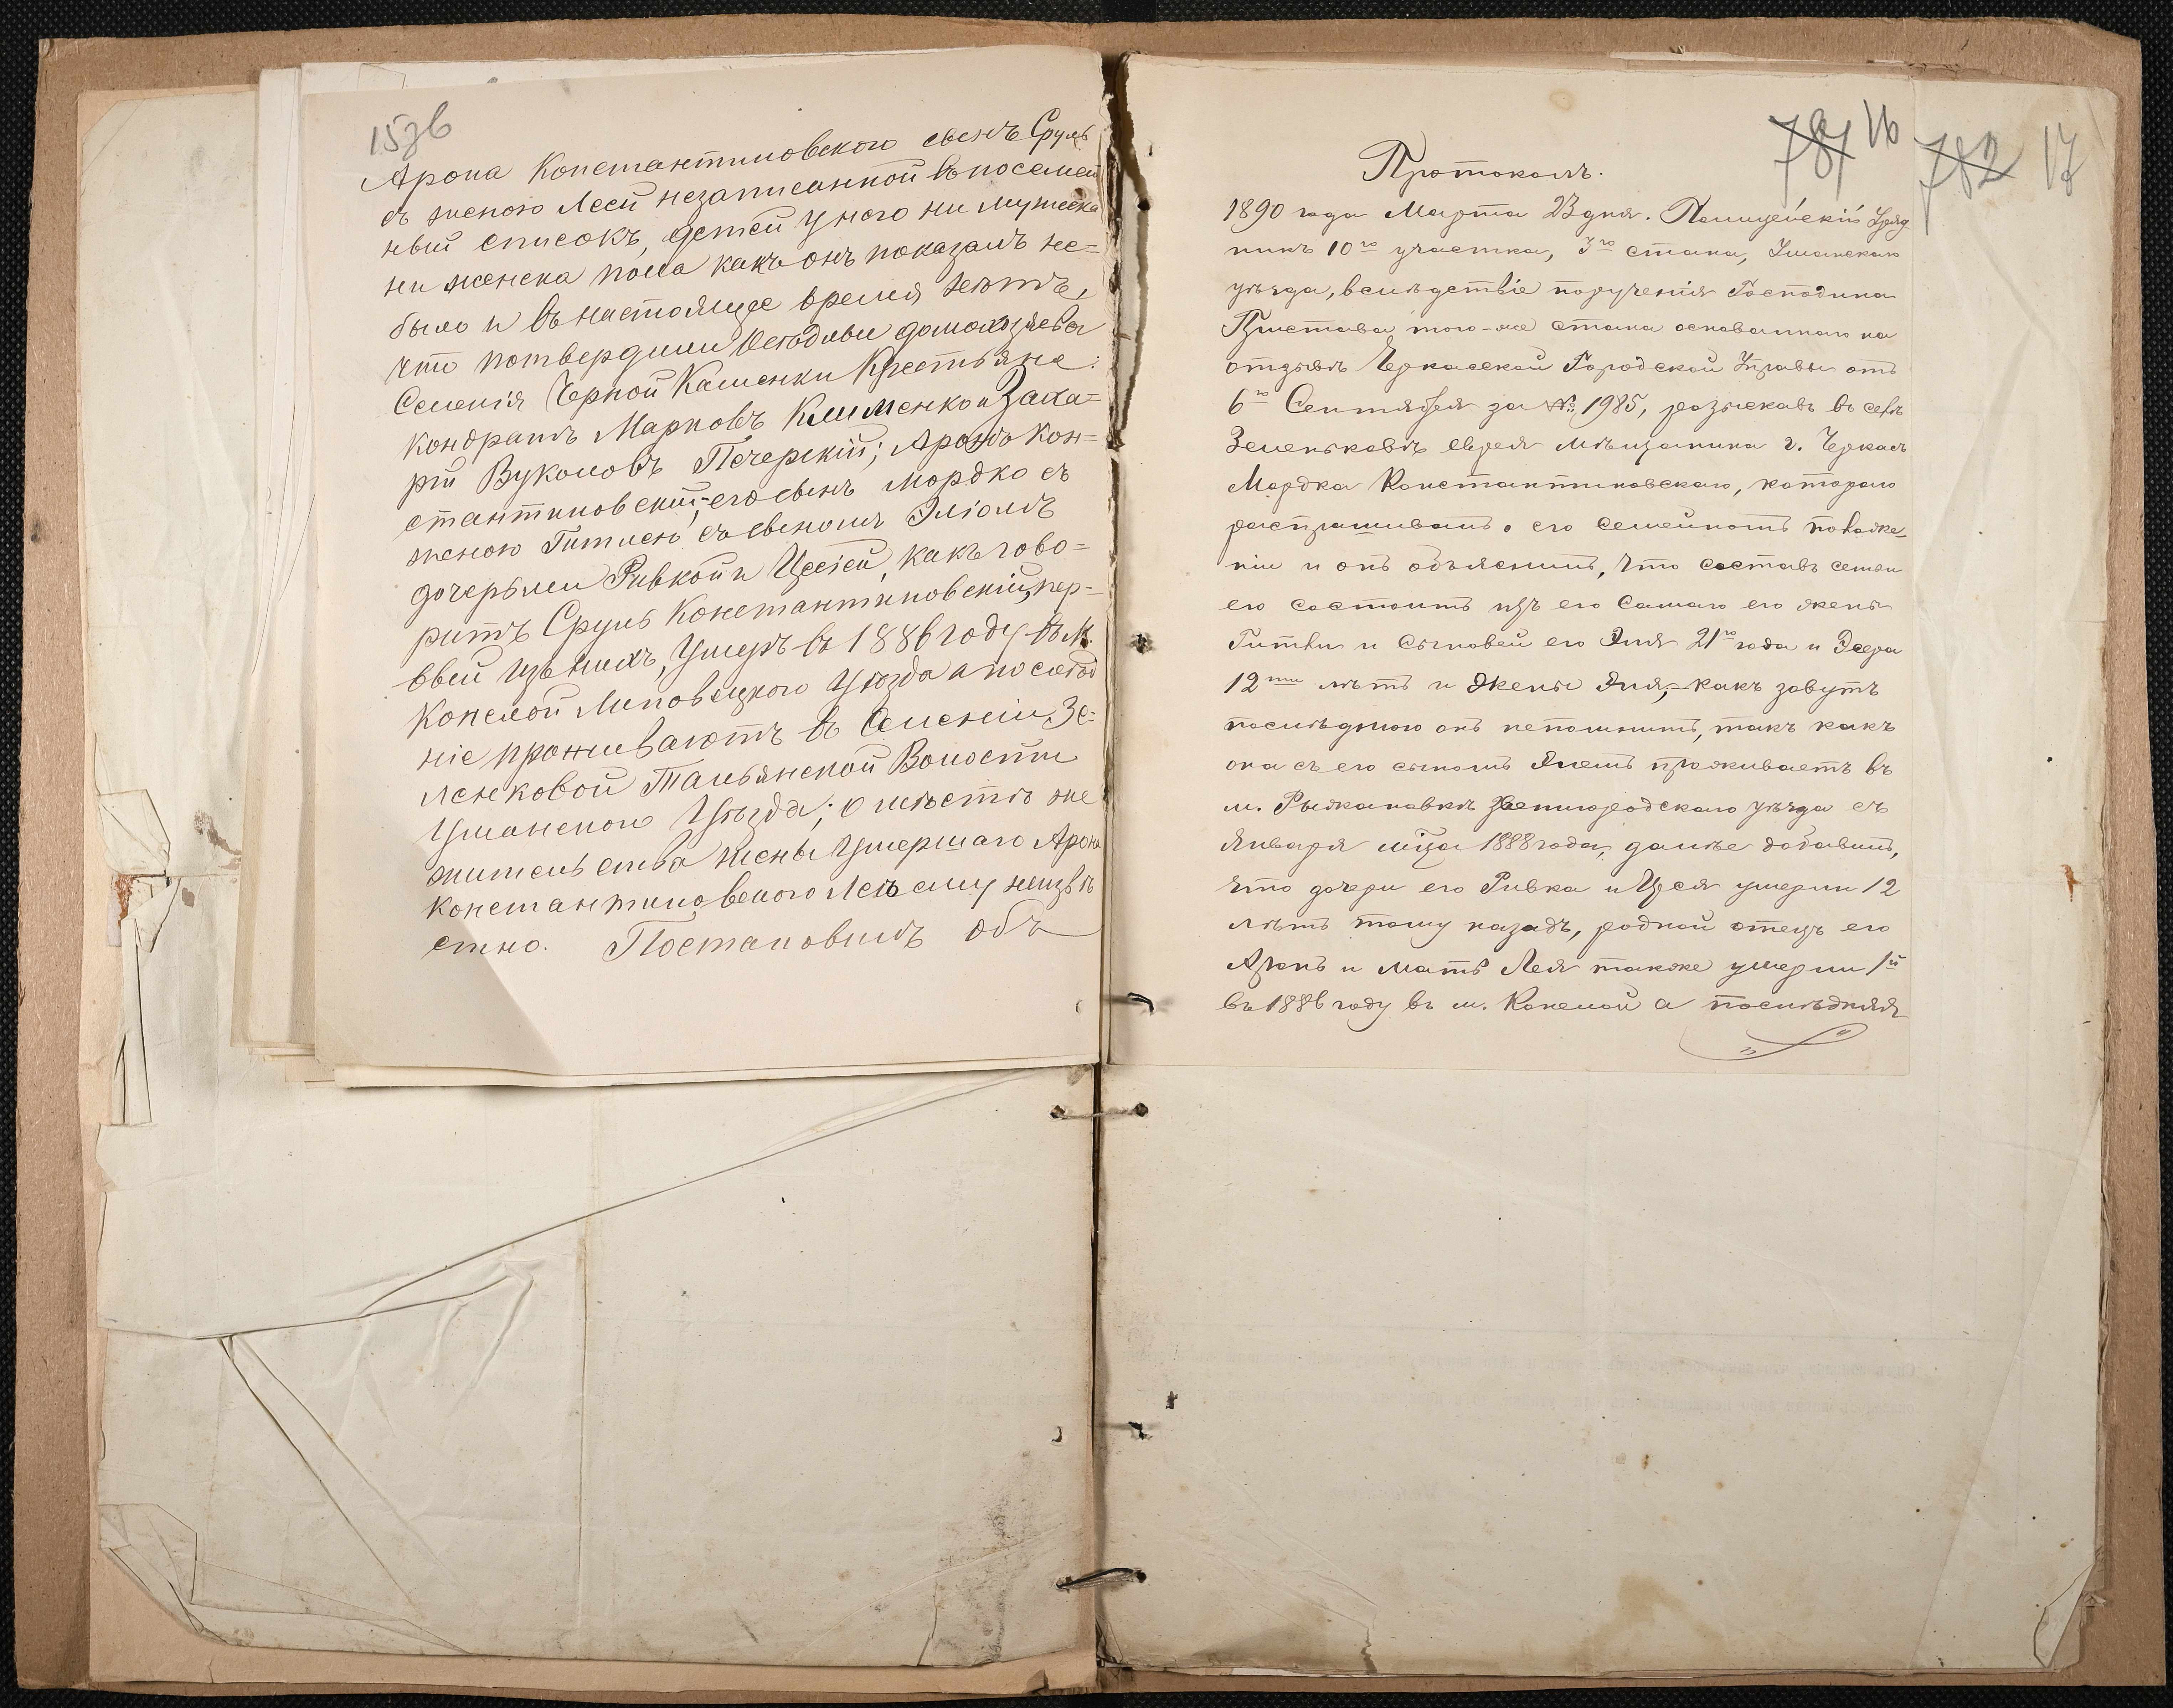 15зв
Арона Константиновского сынъ Сруль
съ женою Леей незаписанной въ посемей
ный списокъ, детей у него ни мужеска
ни женска пола какъ онъ показалъ не=
было и въ настоящее время нетъ,
что потвердили осѣдлые домохозяева
Селенія Черной Каменки Крестьяне:
Кондратъ Марковъ Клименко и Заха=
рій Вуколовъ Печерскій; Аронъ Кон=
стантиновский, его сынъ Мордко съ
женою Гитлею съ сыномъ Эліомъ
дочерьми Ривкой и Цесіей, какъ гово=
ритъ Сруль Константиновскій, пер=
вый изъ нихъ, умеръ въ 1886 году въ м.
Конелой Липовецкого уѣзда а послѣд
ніе проживаютъ въ Селеніи Зе=
ленковой Тальянской Волости
Уманского Уѣзда; о мѣстѣ же
жительства жены умершаго Арона
Константиновского Леѣ ему неизвѣ
стно. Постановилъ объ
781 16
782 17
Протоколъ.
1890 года Марта 23 дня. Полицейскій Уряд
никъ 10го участка, 3го стана, Уманскаго
уѣзда, вслѣдствіе порученія Господина
Пристава того-же стана основаннаго на
отзывѣ Черкасской Городской Управы отъ
6го Сентября за № 1985, розыскавъ въ селѣ
Зеленьковѣ еврея мѣщанина г. Черкасъ
Мордка Константиновскаго, котораго
распрашивалъ о его семейномъ положе=
ніи и онъ объяснилъ, что составъ семьи
его состоитъ изъ его самаго его жены
Гитли и сыновей его Эля 21го года и Эсера
12ти лѣтъ и жены Эля, какъ зовутъ
послѣднюю онъ непомнитъ, такъ какъ
она съ его сыномъ Элемъ проживаетъ въ
м. Рыжановкѣ Звенигородскаго уѣзда съ
Января мѣца 1888 года, далѣе добавилъ,
что дочери его Ривка и Цеся умерли 12
лѣтъ тому назадъ, родной отецъ его
Аронъ и мать Лея также умерли 1й
въ 1886 году въ м. Конелой а послѣдняя